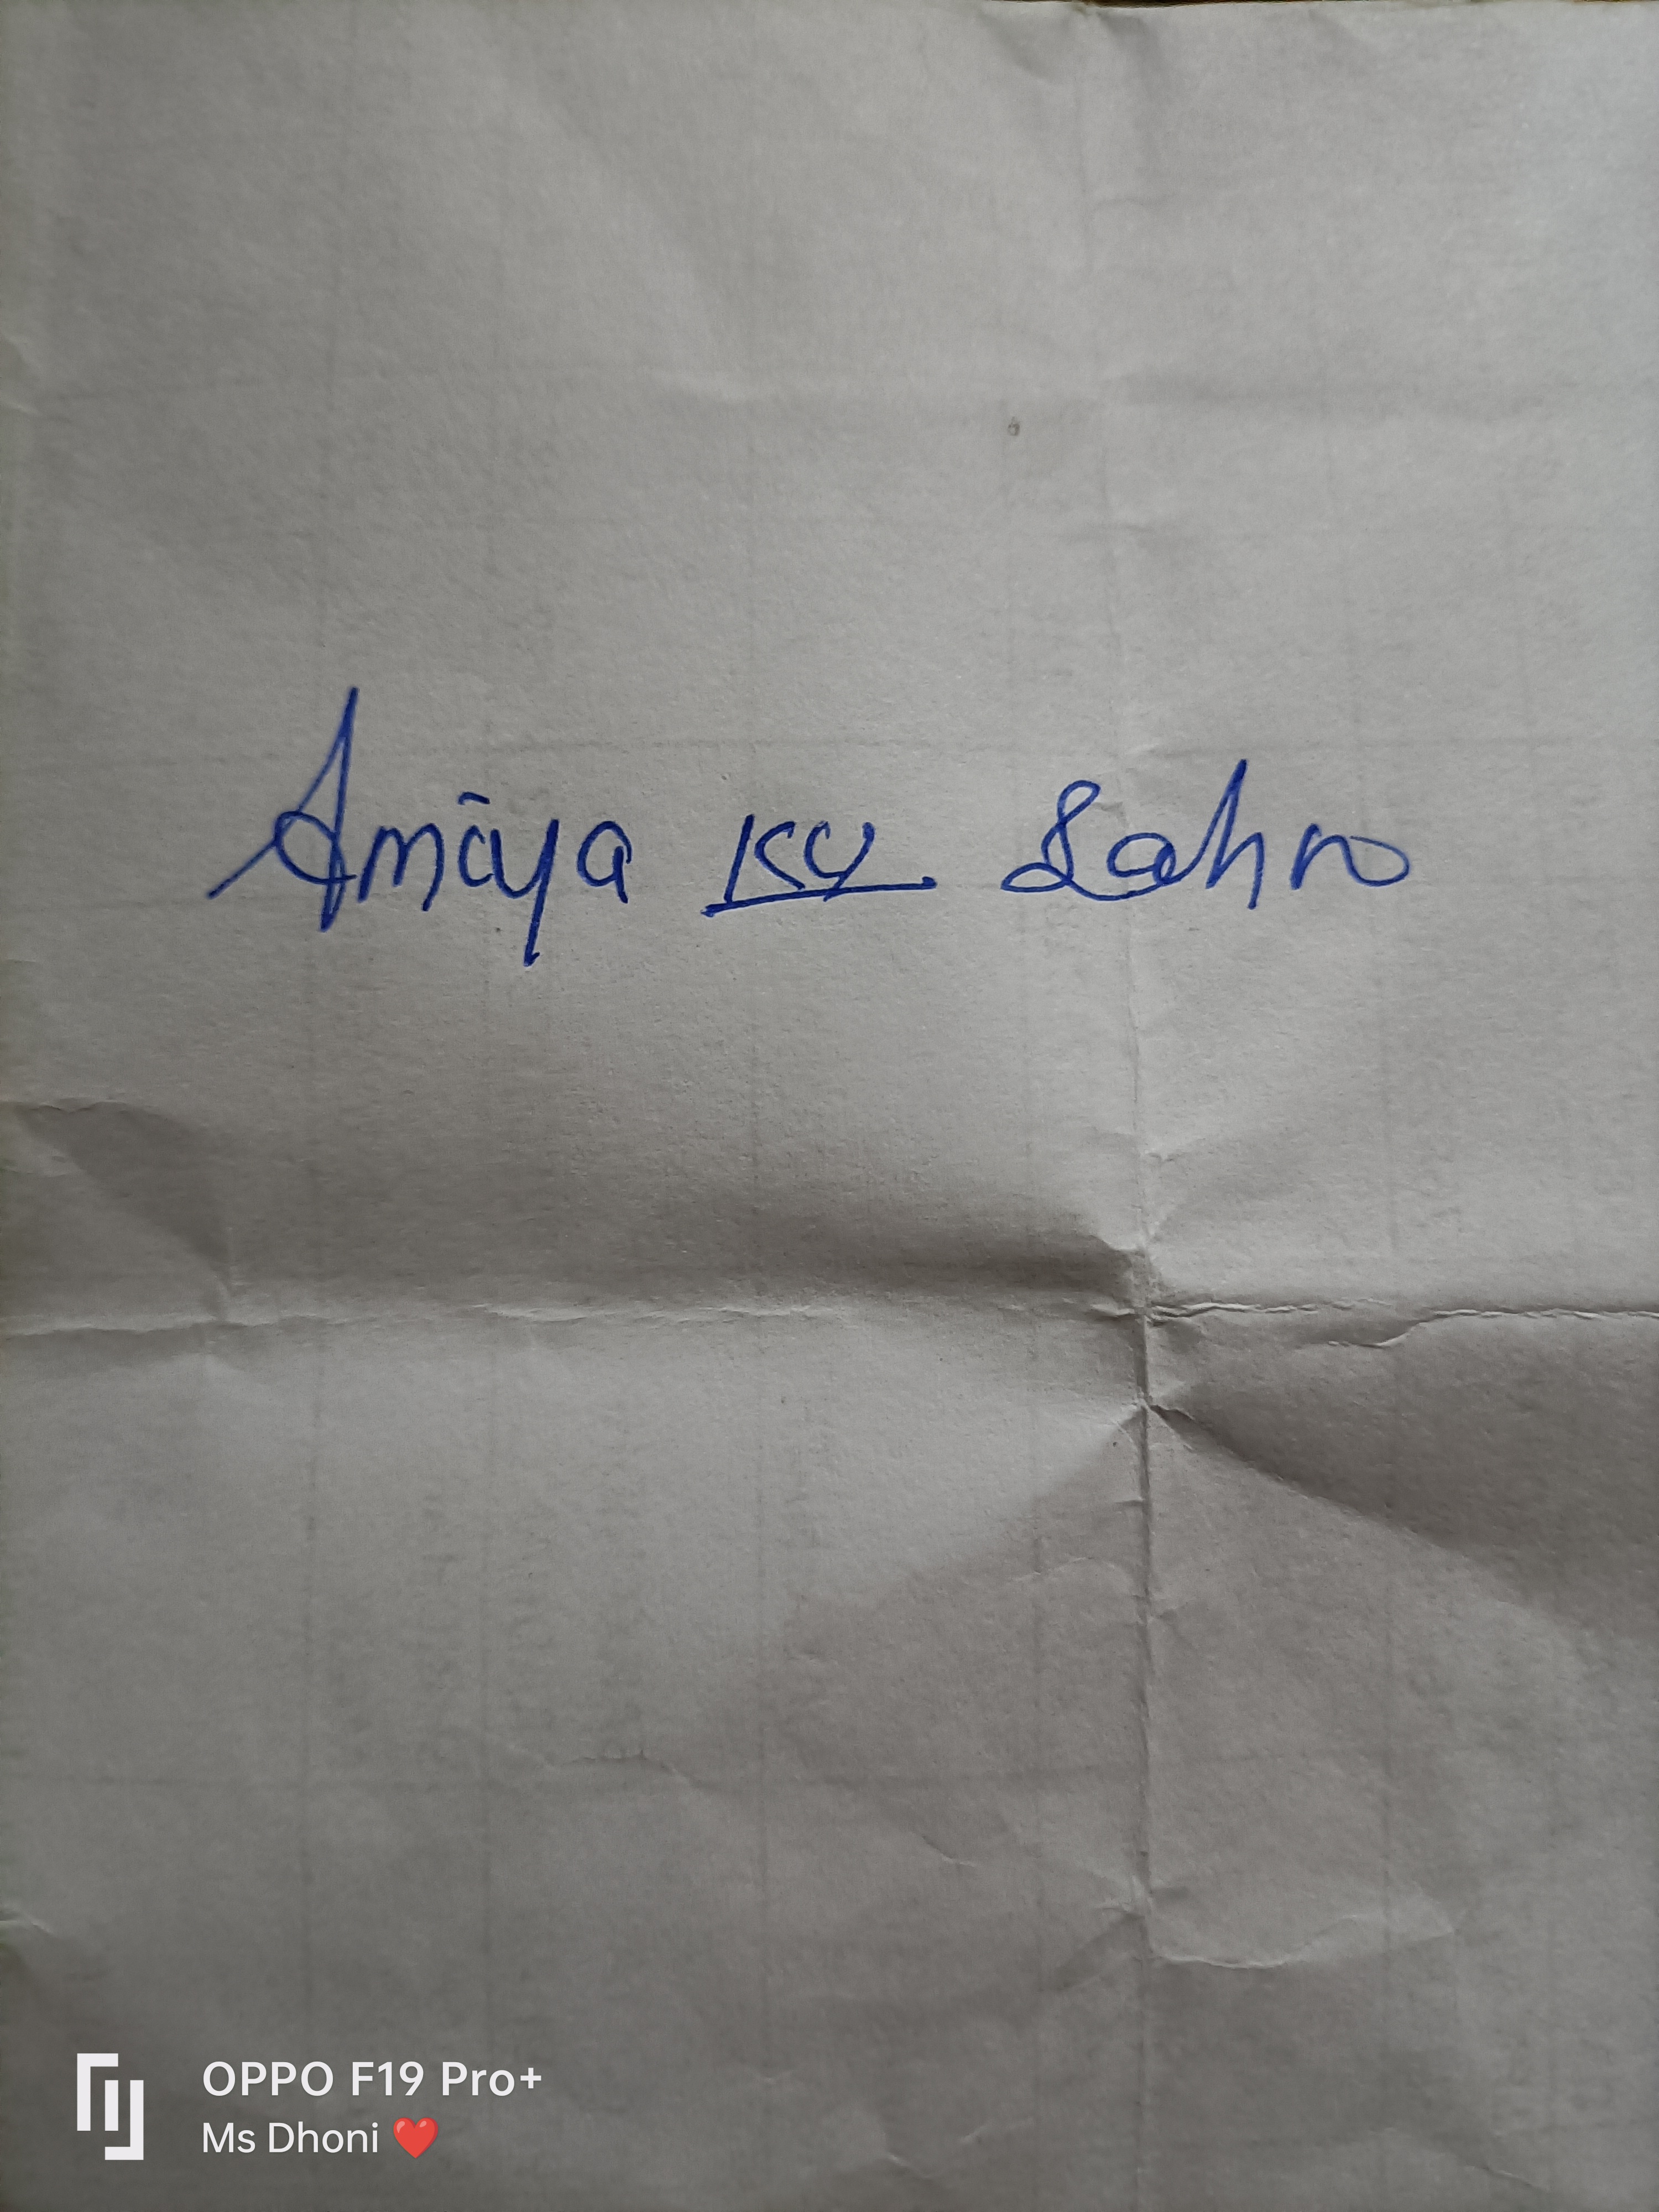 Amiya Ku Sahoo
OPPO F19 Pro+
Ms Dhoni ❤️